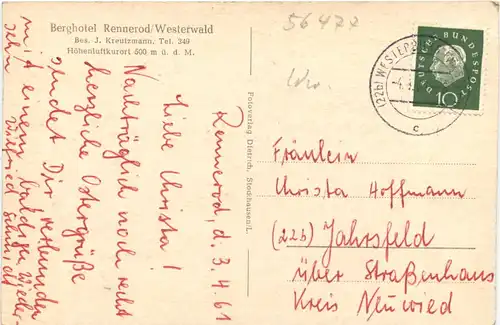 Berghotel Rennerod/Westerwald
Bes. J. Kreutzmann, Tel. 349
Höhenluftkurort 500 m ü. d. M.
56472
DEUTSCHE BUNDESPOST
10
(22b) WESTER
c
Fotoverlag Dietrich, Stockhausen/L.
Rennerod, d. 3.4.61
Liebe Christa!
Nachträglich noch recht
herzliche Ostergrüße
sendet Dir verbunden
mit einem baldigen Wieder-
sehn Wilfried Schmidt
Fräulein
Christa Hoffmann
(22b) Jahrsfeld
über Straßenhaus
Kreis Neuwied